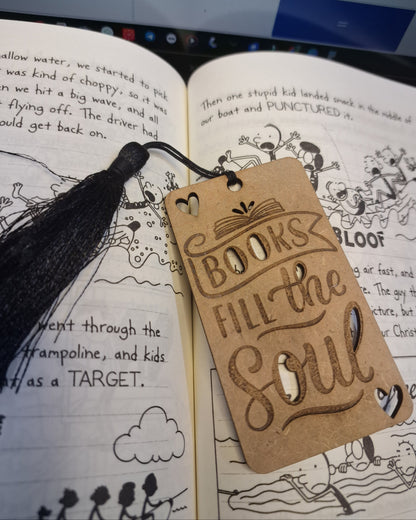 allow water, we started to pick
was kind of choppy, so it was
n we hit a big wave, and all
flying off. The driver had
ould get back on.
went through the
trampoline, and kids
as a TARGET.
Then one stupid kid landed smack in the middle of
our boat and PUNCTURED it.
BLOOF
g air fast, and
re. The guy th
icture, but
ur Christ
BOOKS
FILL the
Soul